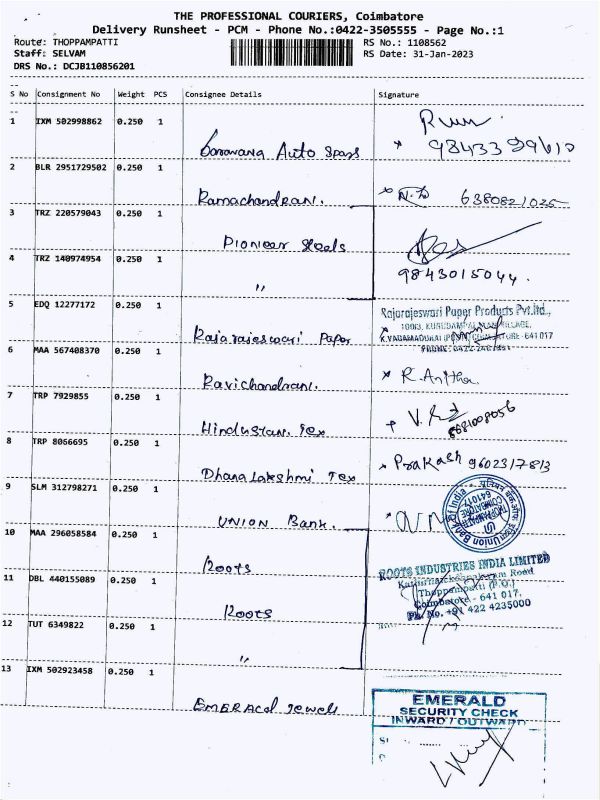 THE PROFESSIONAL COURIERS, Coimbatore
Delivery Runsheet - PCM - Phone No.:0422-3505555 - Page No.:1
Route: THOPPAMPATTI RS No.: 1108562
Staff: SELVAM RS Date: 31-Jan-2023
DRS No.: DCJB110856201
S No Consignment No Weight PCS Consignee Details Signature
1 IXM 502998862 0.250 1
Auto Spars 9843399610
2 BLR 2951729502 0.250 1
Ramachandran. 6380821025
3 TRZ 220579043 0.250 1
Pioneer Steels
4 TRZ 140974954 0.250 1
" 9843015044.
5 EDQ 12277172 0.250 1 Rajarajeswari Paper Products Pvt.ltd.,
Rajarajeswari Paper
6 MAA 567408370 0.250 1
Ravichandran. R. Anitha
7 TRP 7929855 0.250 1
Hindustan Tex 8681008056
8 TRP 8066695 0.250 1 Prakash 9602317813
Dhana Lakshmi Tex
9 SLM 312798271 0.250 1
UNION Bank. Union Bank of India
COIMBATORE
641017
10 MAA 296058584 0.250 1
Roots ROOTS INDUSTRIES INDIA LIMITED
Road
11 DBL 440155089 0.250 1 Thoppampatti (P.O.)
Coimbatore - 641 017.
Roots Ph. No. +91 422 4235000
12 TUT 6349822 0.250 1
"
13 IXM 502923458 0.250 1
EMERALD Jewels EMERALD
SECURITY CHECK
INWARD / OUTWARD